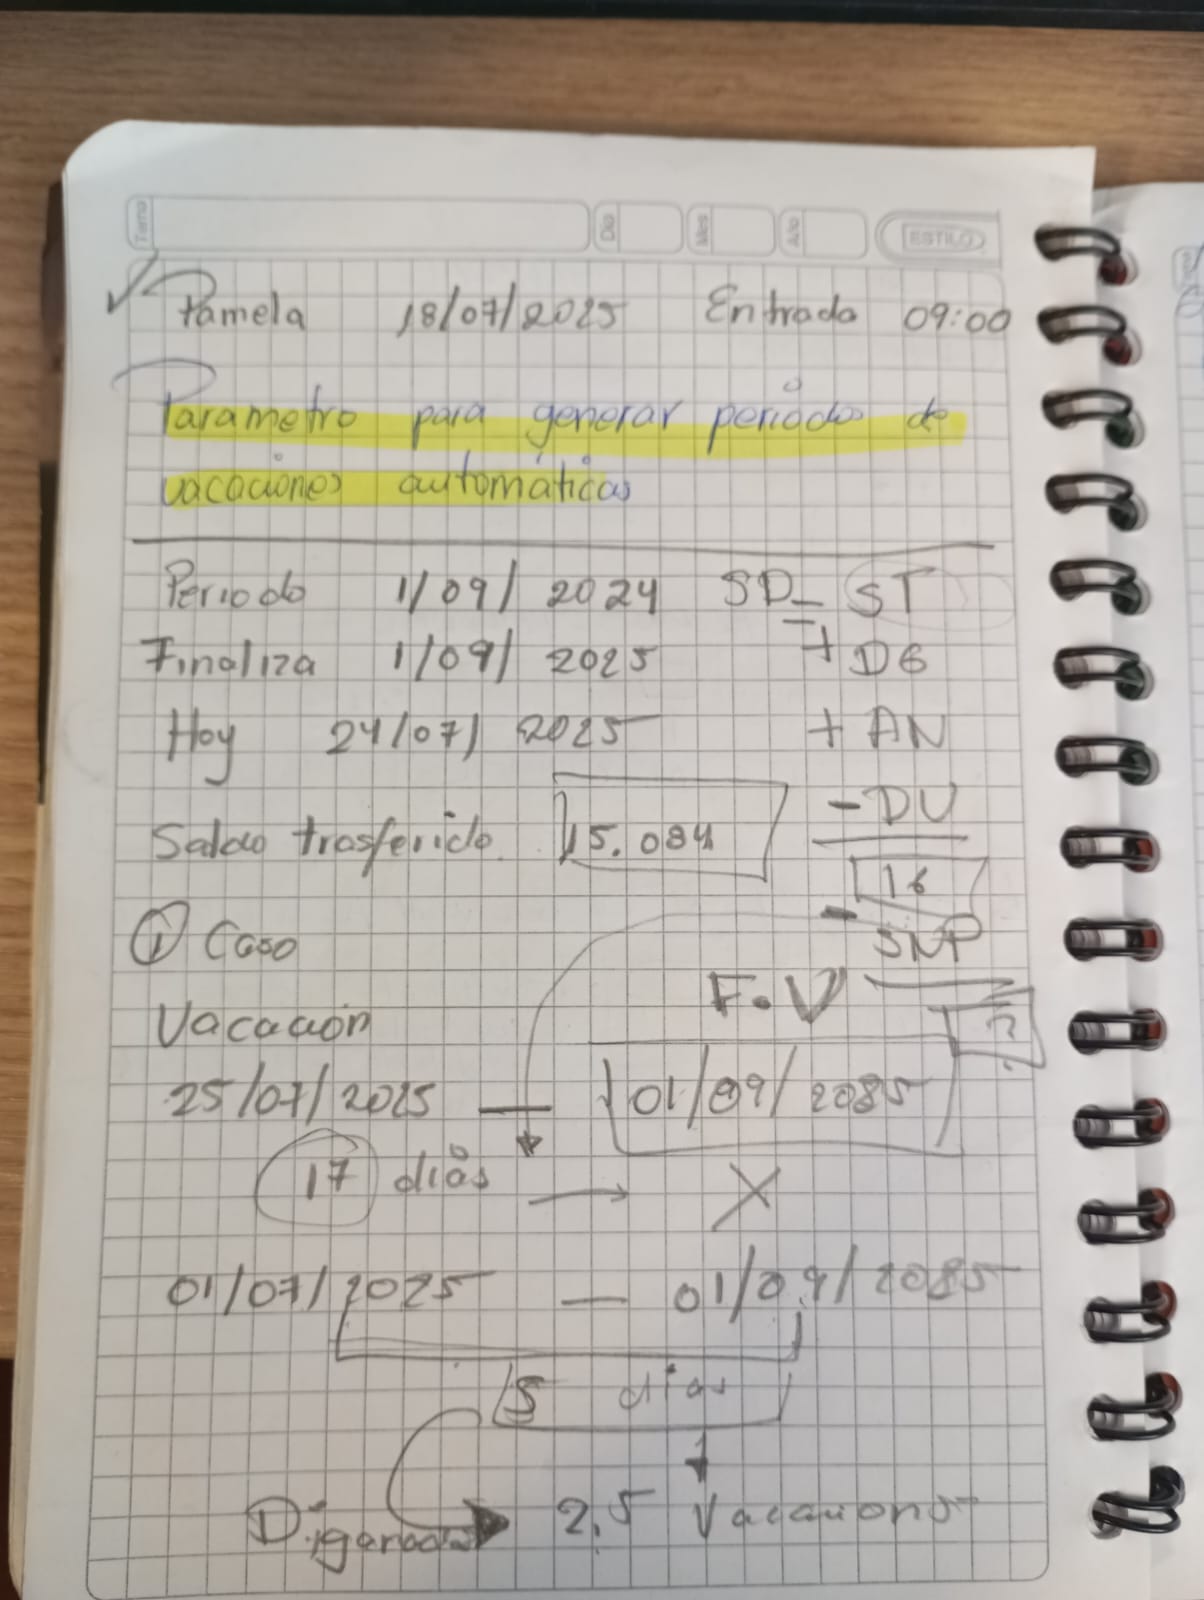 Tema Dia Mes Año ESTILO
Pamela 18/07/2025 Entrada 09:00
Parametro para generar periodos de
vacaciones automáticas
Periodo 1/09/2024 SD = ST
Finaliza 1/09/2025 + DG
Hoy 24/07/2025 + AN
- DU
Saldo trasferido 15.084
16
① Caso - SNP
F.V
Vacación ?
25/07/2025 — 01/09/2085
17 días → X
01/07/2025 — 01/09/2085
5 días
D. ganados 2.5 Vacacions